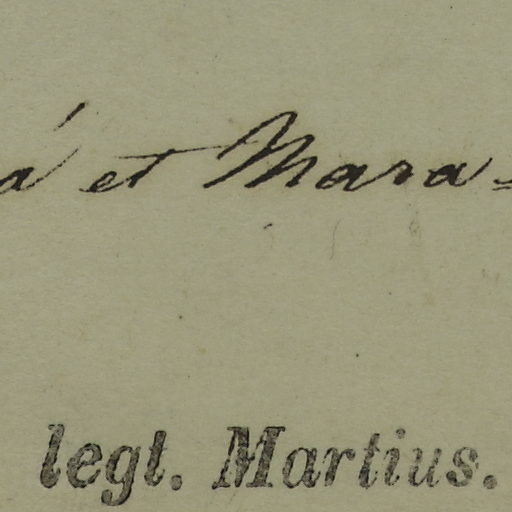 á et Mara-
legt. Martius.